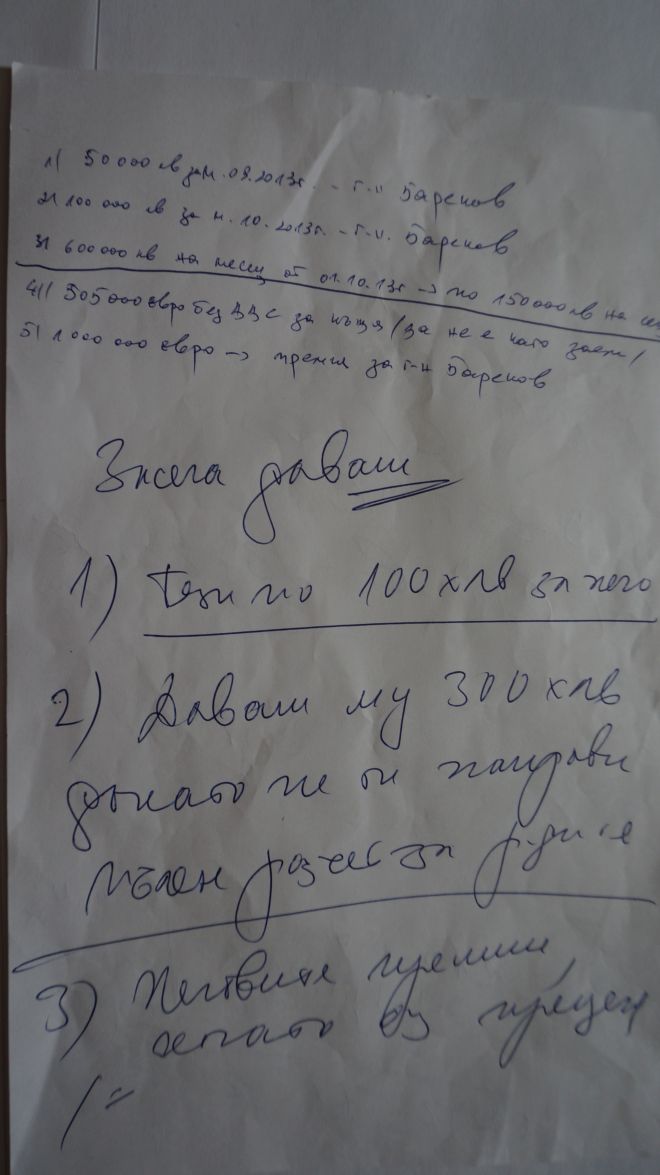 1) 50 000 лв за м. 09.2013г. - г-н Бареков
2) 100 000 лв за м. 10.2013г. - г-н. Бареков
3) 600 000 лв на месец от 01.10.13г → по 150 000 лв на
4) 505 000 евро без ДДС за къща /за не е като заем/
5) 1 000 000 евро → премия за г-н Бареков
Засега даваш
1) Тези по 100х лв за него
2) Даваш му 300х лв
докато не ти направи
пълен разчет за
3) Неговите премии,
когато аз преценя